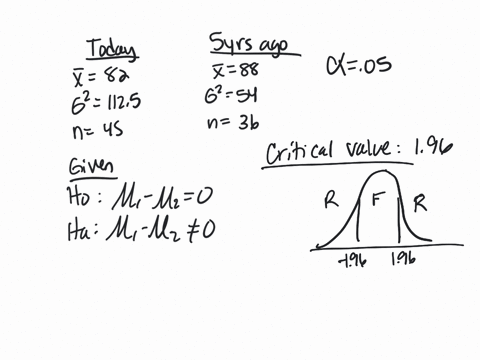 Today
x̄ = 82
σ² = 112.5
n = 45
5yrs ago
x̄ = 88
σ² = 54
n = 36
α = .05
Given
Ho : μ₁ - μ₂ = 0
Ha : μ₁ - μ₂ ≠ 0
Critical value : 1.96
R F R
-1.96 1.96